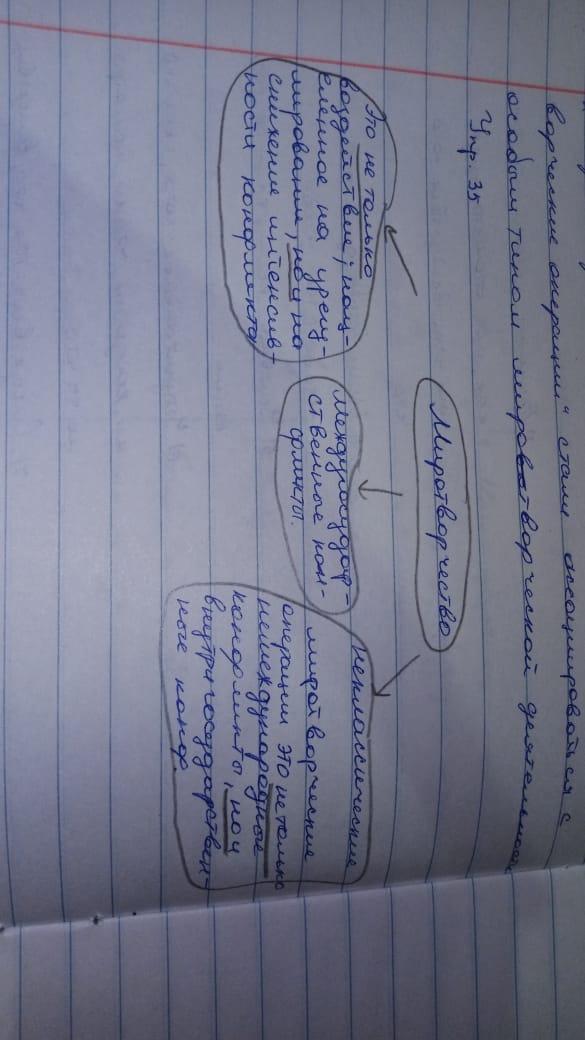 ворческие операции" стали ассоциироваться с
особым типом миротворческой деятельности
Упр. 35
Миротворчество
Это не только
воздействие, нац-
еленное на урегу-
лирование, но и на
снижение интенсив-
ности конфликта
Междугосудар-
ственные кон-
фликты.
неклассические
миротворческие
операции это не только
немеждународные
конфликты, но и
внутригосударствен-
ные конф.